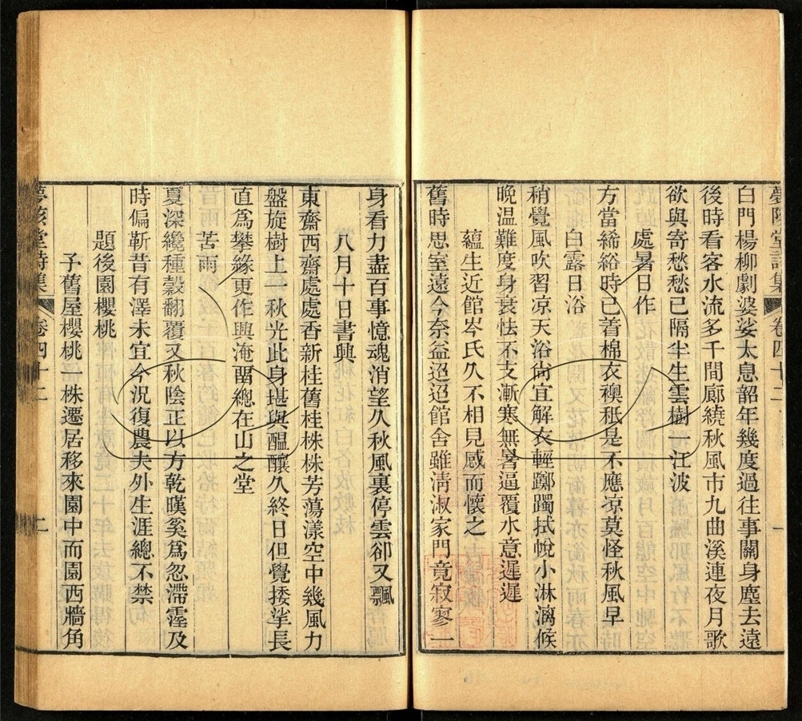 夢陔堂詩集 卷四十二 一
白門楊柳劇婆娑太息韶年幾度過往事關身塵去遠
後時看客水流多千間廊繞秋風市九曲溪連夜月歌
欲與寄愁愁已隔半生雲樹一汪波
處暑日作
方當絺綌時已著棉衣襖袛是不應凉莫怪秋風早
白露日浴
稍覺風吹習凉天浴尙宜解衣輕躑躅拭帨小淋漓候
晚温難度身衰怯不支漸寒無暑逼覆水意遲遲
蘊生近館岑氏久不相見感而懷之
舊時思室遠今奈益迢迢館舍雖淸淑家門竟寂寥一
身看力盡百事憶魂消望久秋風裏停雲卻又飄
八月十日書興
東齋西齋處處香新桂舊桂株株芳蕩漾空中幾風力
盤旋樹上一秋光此身堪與醞釀久終日但覺捼挲長
直爲攀緣更作興淹畱總在山之堂
苦雨
夏深纔種穀翻覆又秋陰正以方乾嘆奚爲忽滯霪及
時偏靳昔有澤未宜今況復農夫外生涯總不禁
題後園櫻桃
子舊屋櫻桃一株遷居移來園中而園西牆角
夢陔堂詩集 卷四十二 二